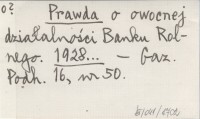 o?
Prawda o owocnej
działalności Banku Rol-
nego. 1928... — Gaz.
Podh. 16, nr 50.